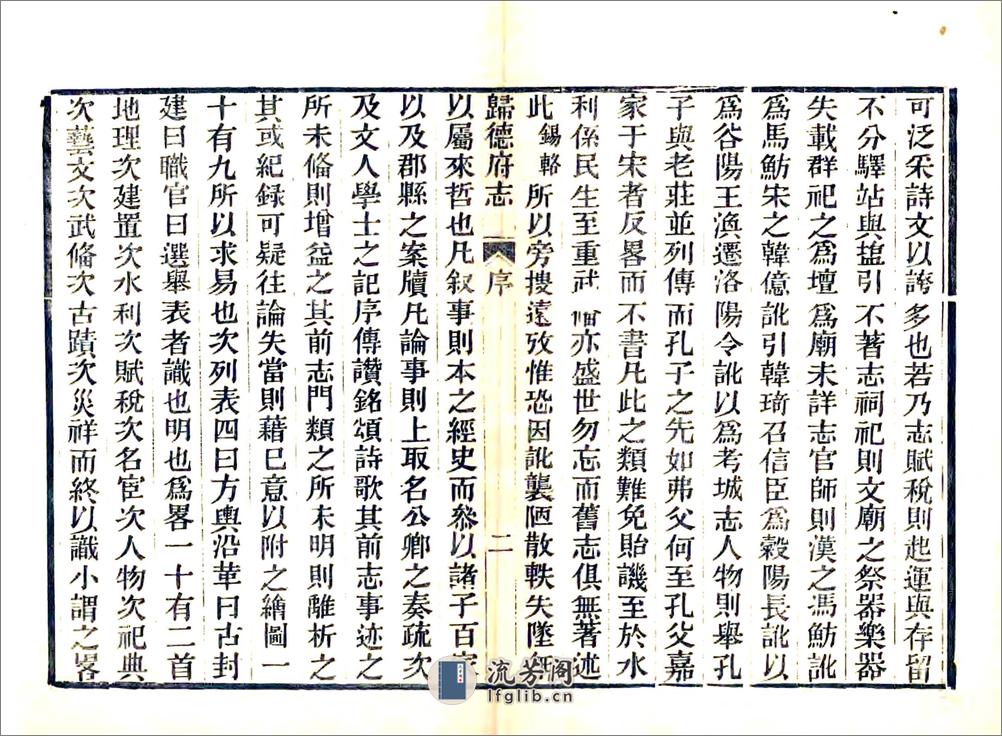 可泛采詩文以誇多也若乃志賦稅則起運與存留
不分驛站與鹽引不著志祠祀則文廟之祭器樂器
失載群祀之爲壇爲廟未詳志官師則漢之馮魴訛
爲馬魴宋之韓億訛引韓琦召信臣爲穀陽長訛以
爲谷陽王渙遷洛陽令訛以爲考城志人物則舉孔
子與老莊並列傳而孔子之先如弗父何至孔父嘉
家于宋者反畧而不書凡此之類難免貽譏至於水
利係民生至重武備亦盛世勿忘而舊志俱無著述
此錫輅所以旁搜遠攷惟恐因訛襲陋散軼失墜無
歸德府志 序 二
以屬來哲也凡叙事則本之經史而叅以諸子百家
以及郡縣之案牘凡論事則上取名公卿之奏疏次
及文人學士之記序傳讚銘頌詩歌其前志事迹之
所未備則增益之其前志門類之所未明則離析之
其或紀録可疑往論失當則藉已意以附之繪圖一
十有九所以求易也次列表四曰方輿沿革曰古封
建曰職官曰選舉表者識也明也爲畧一十有二首
地理次建置次水利次賦稅次名宦次人物次祀典
次藝文次武備次古蹟次災祥而終以識小謂之畧
流芳阁
lfglib.com